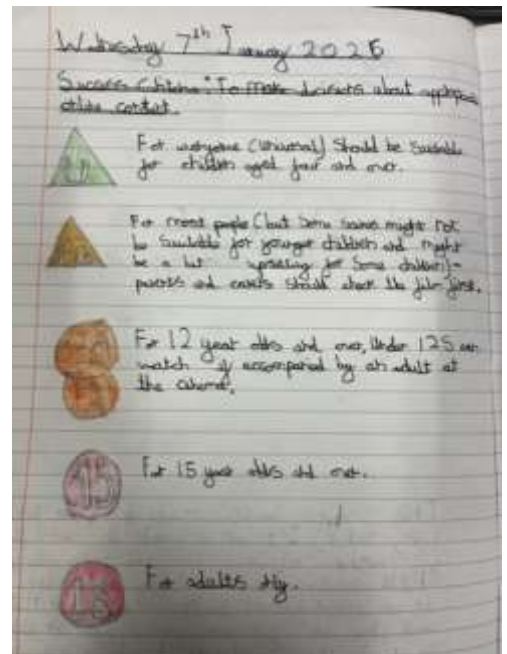 Wednesday 7th January 2026
Success Criteria: To make decisions about appropriate
online content.
U
For everyone (Universal) Should be Suitable
for children aged four and over.
PG
For most people (but Some Scenes might not
be Suitable for younger children and might
be a bit upsetting for Some children)-
parents and carers should check the film first.
For 12 year olds and over, Under 12S can
watch if accompanied by an adult at
the cinema.
15
For 15 year olds and over.
18
For adults only.